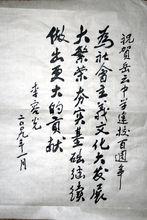 祝贺岳云中学建校百週年
為社會主義文化大发展
大繁荣夯实基础继续
做出更大的贡献
李容光
二〇〇九年一月